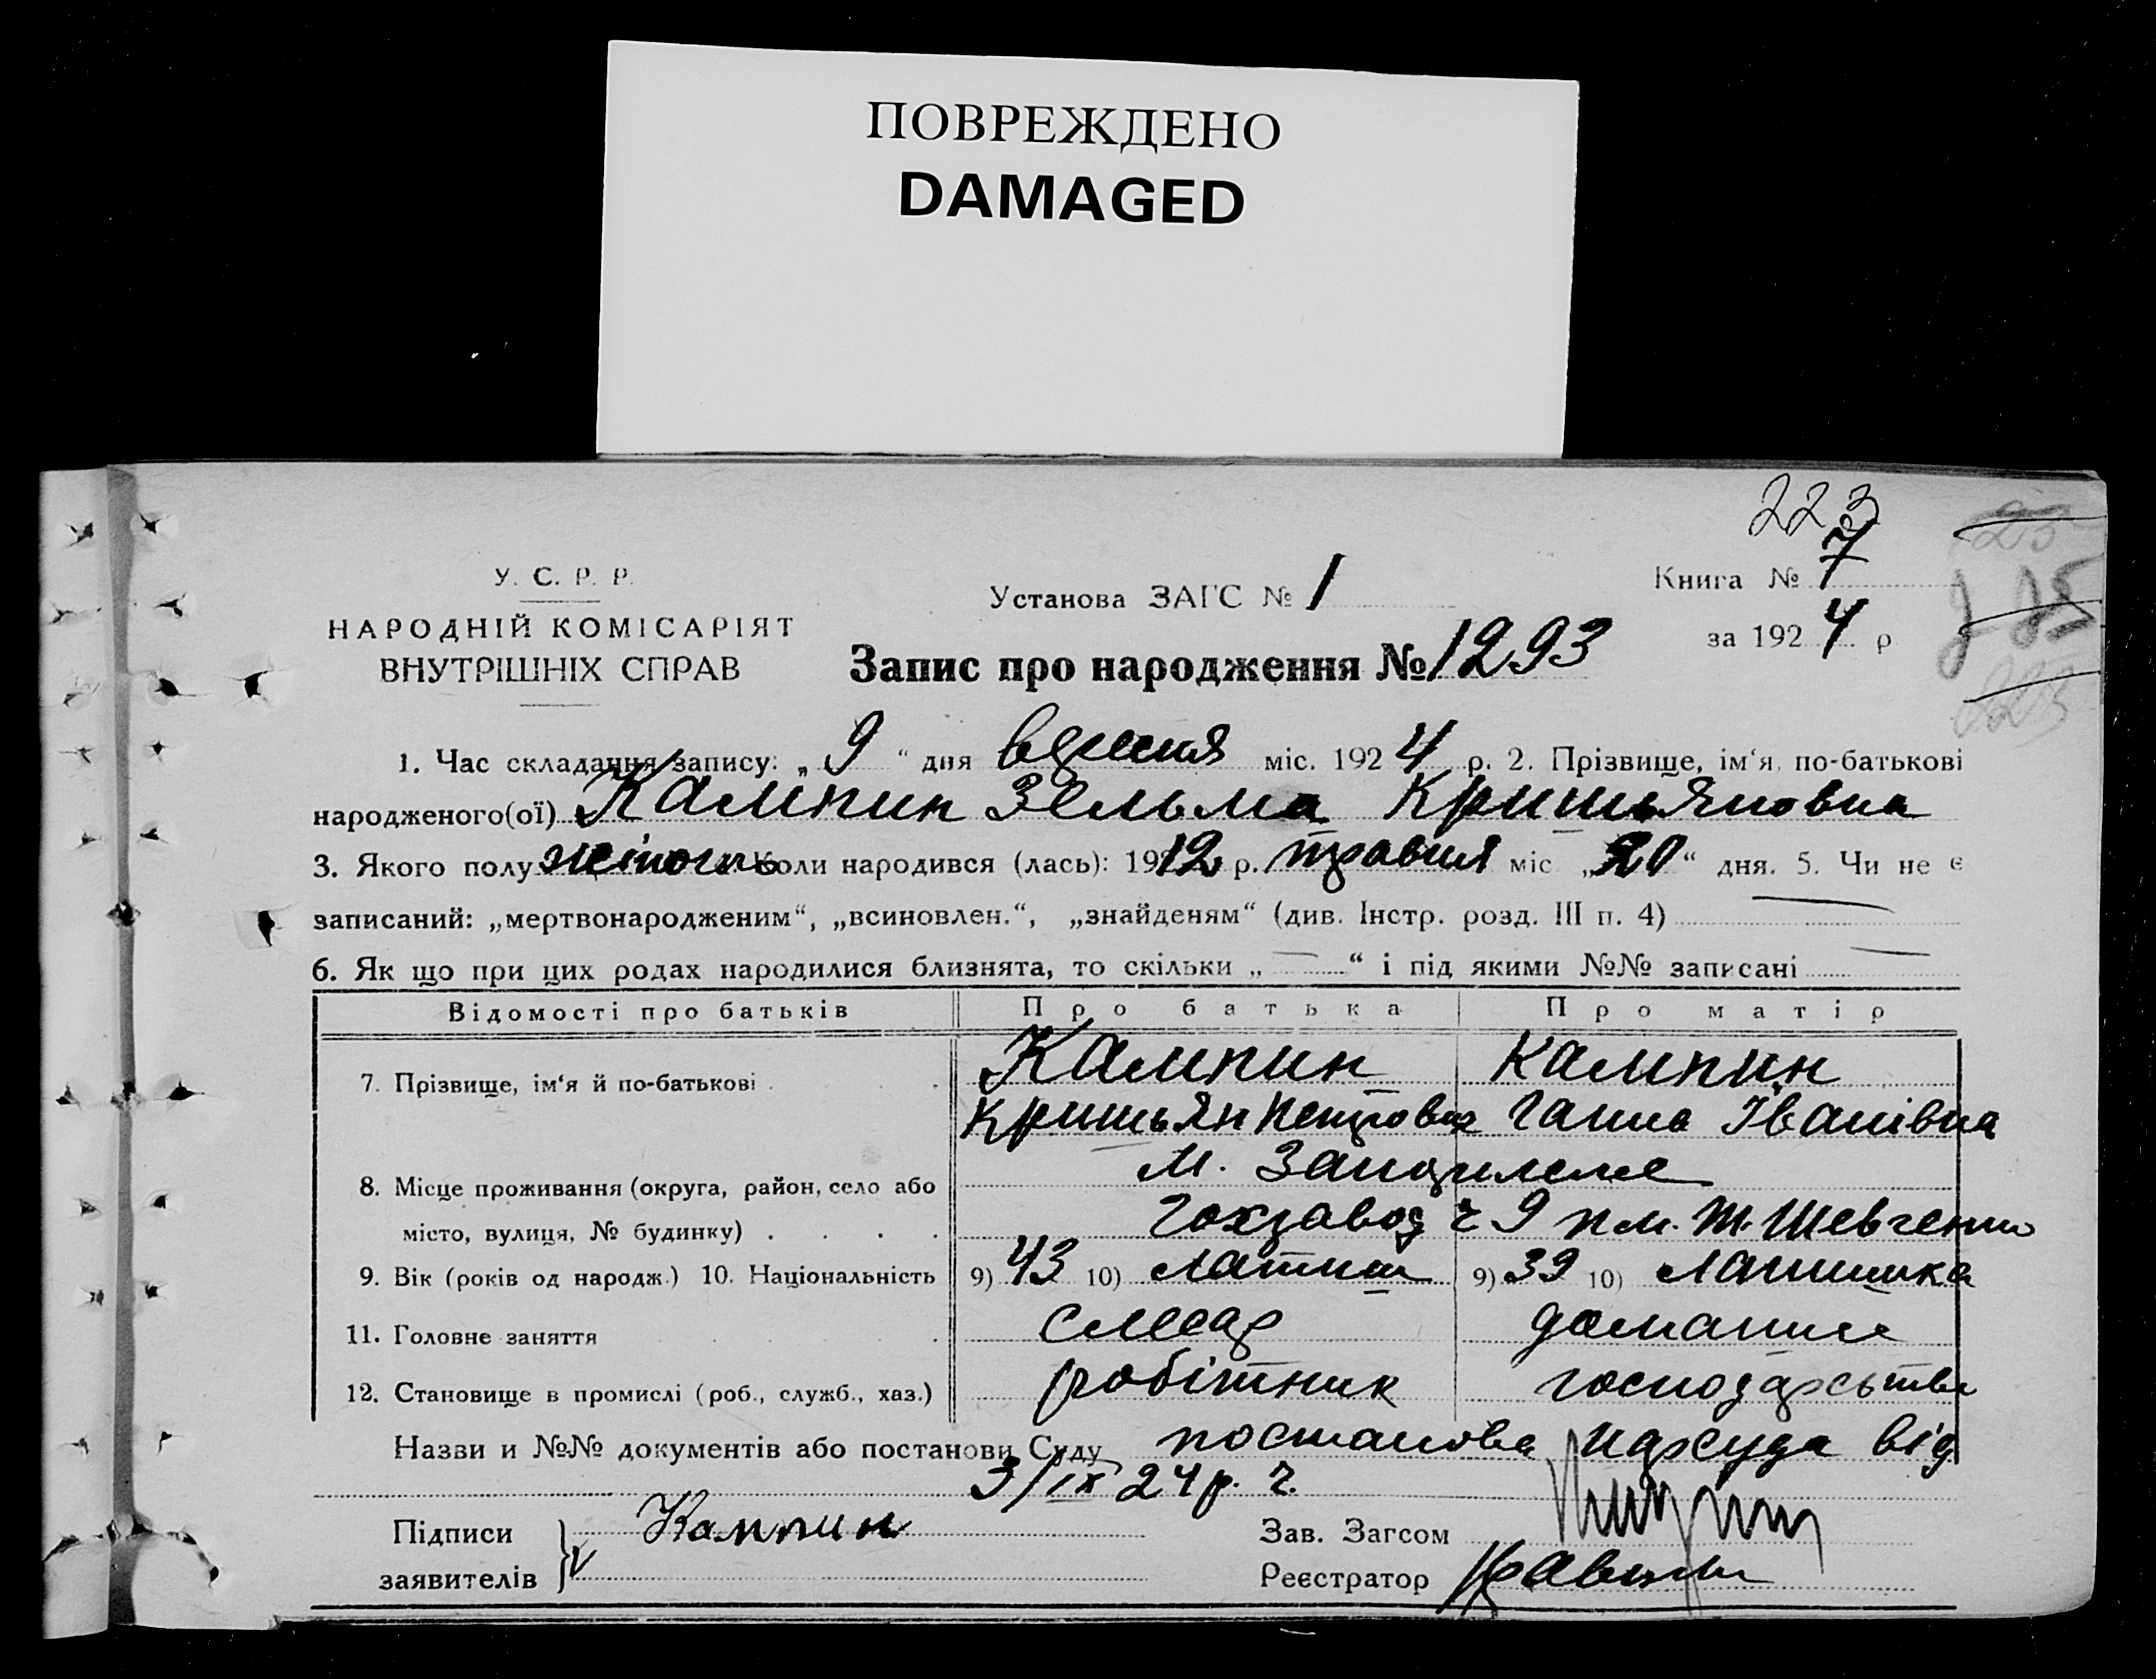 ПОВРЕЖДЕНО
DAMAGED
223
У. С. Р. Р.
НАРОДНІЙ КОМІСАРІЯТ
ВНУТРІШНІХ СПРАВ
Установа ЗАГС № 1
Книга № 7
за 1924 р
Запис про народження № 1293
1. Час складання запису: „ 9 “ дня вересня міс. 1924 р. 2. Прізвище, ім‘я, по-батькові
народженого(ої) Кампин Зельма Кришьяновна
3. Якого полу жіночь Коли народився (лась): 1912 р. травня міс „20“ дня. 5. Чи не є
записаний: „мертвонародженим“, „всиновлен.“, „знайденям“ (див. Інстр. розд. III п. 4) —
6. Як що при цих родах народилися близнята, то скільки „ — “ і під якими №№ записані —
Відомості про батьків Про батька Про матір
7. Прізвище, ім‘я й по-батькові Кампин Кампин
Кришьян Петрович Ганна Іванівна
8. Місце проживання (округа, район, село або м. Запоріжже
місто, вулиця, № будинку) ч 9 Т. Шевченко
9. Вік (років од народж.) 10. Національність 9) 43 10) латиш 9) 39 10) латишка
11. Головне заняття слесар домашнє
12. Становище в промислі (роб., служб., хаз.) робітник господарьство
Назви и №№ документів або постанови Суду постанова Нарсуда від
3/IX 24 р. ч.
Підписи Кампин Зав. Загсом
заявителів Реєстратор